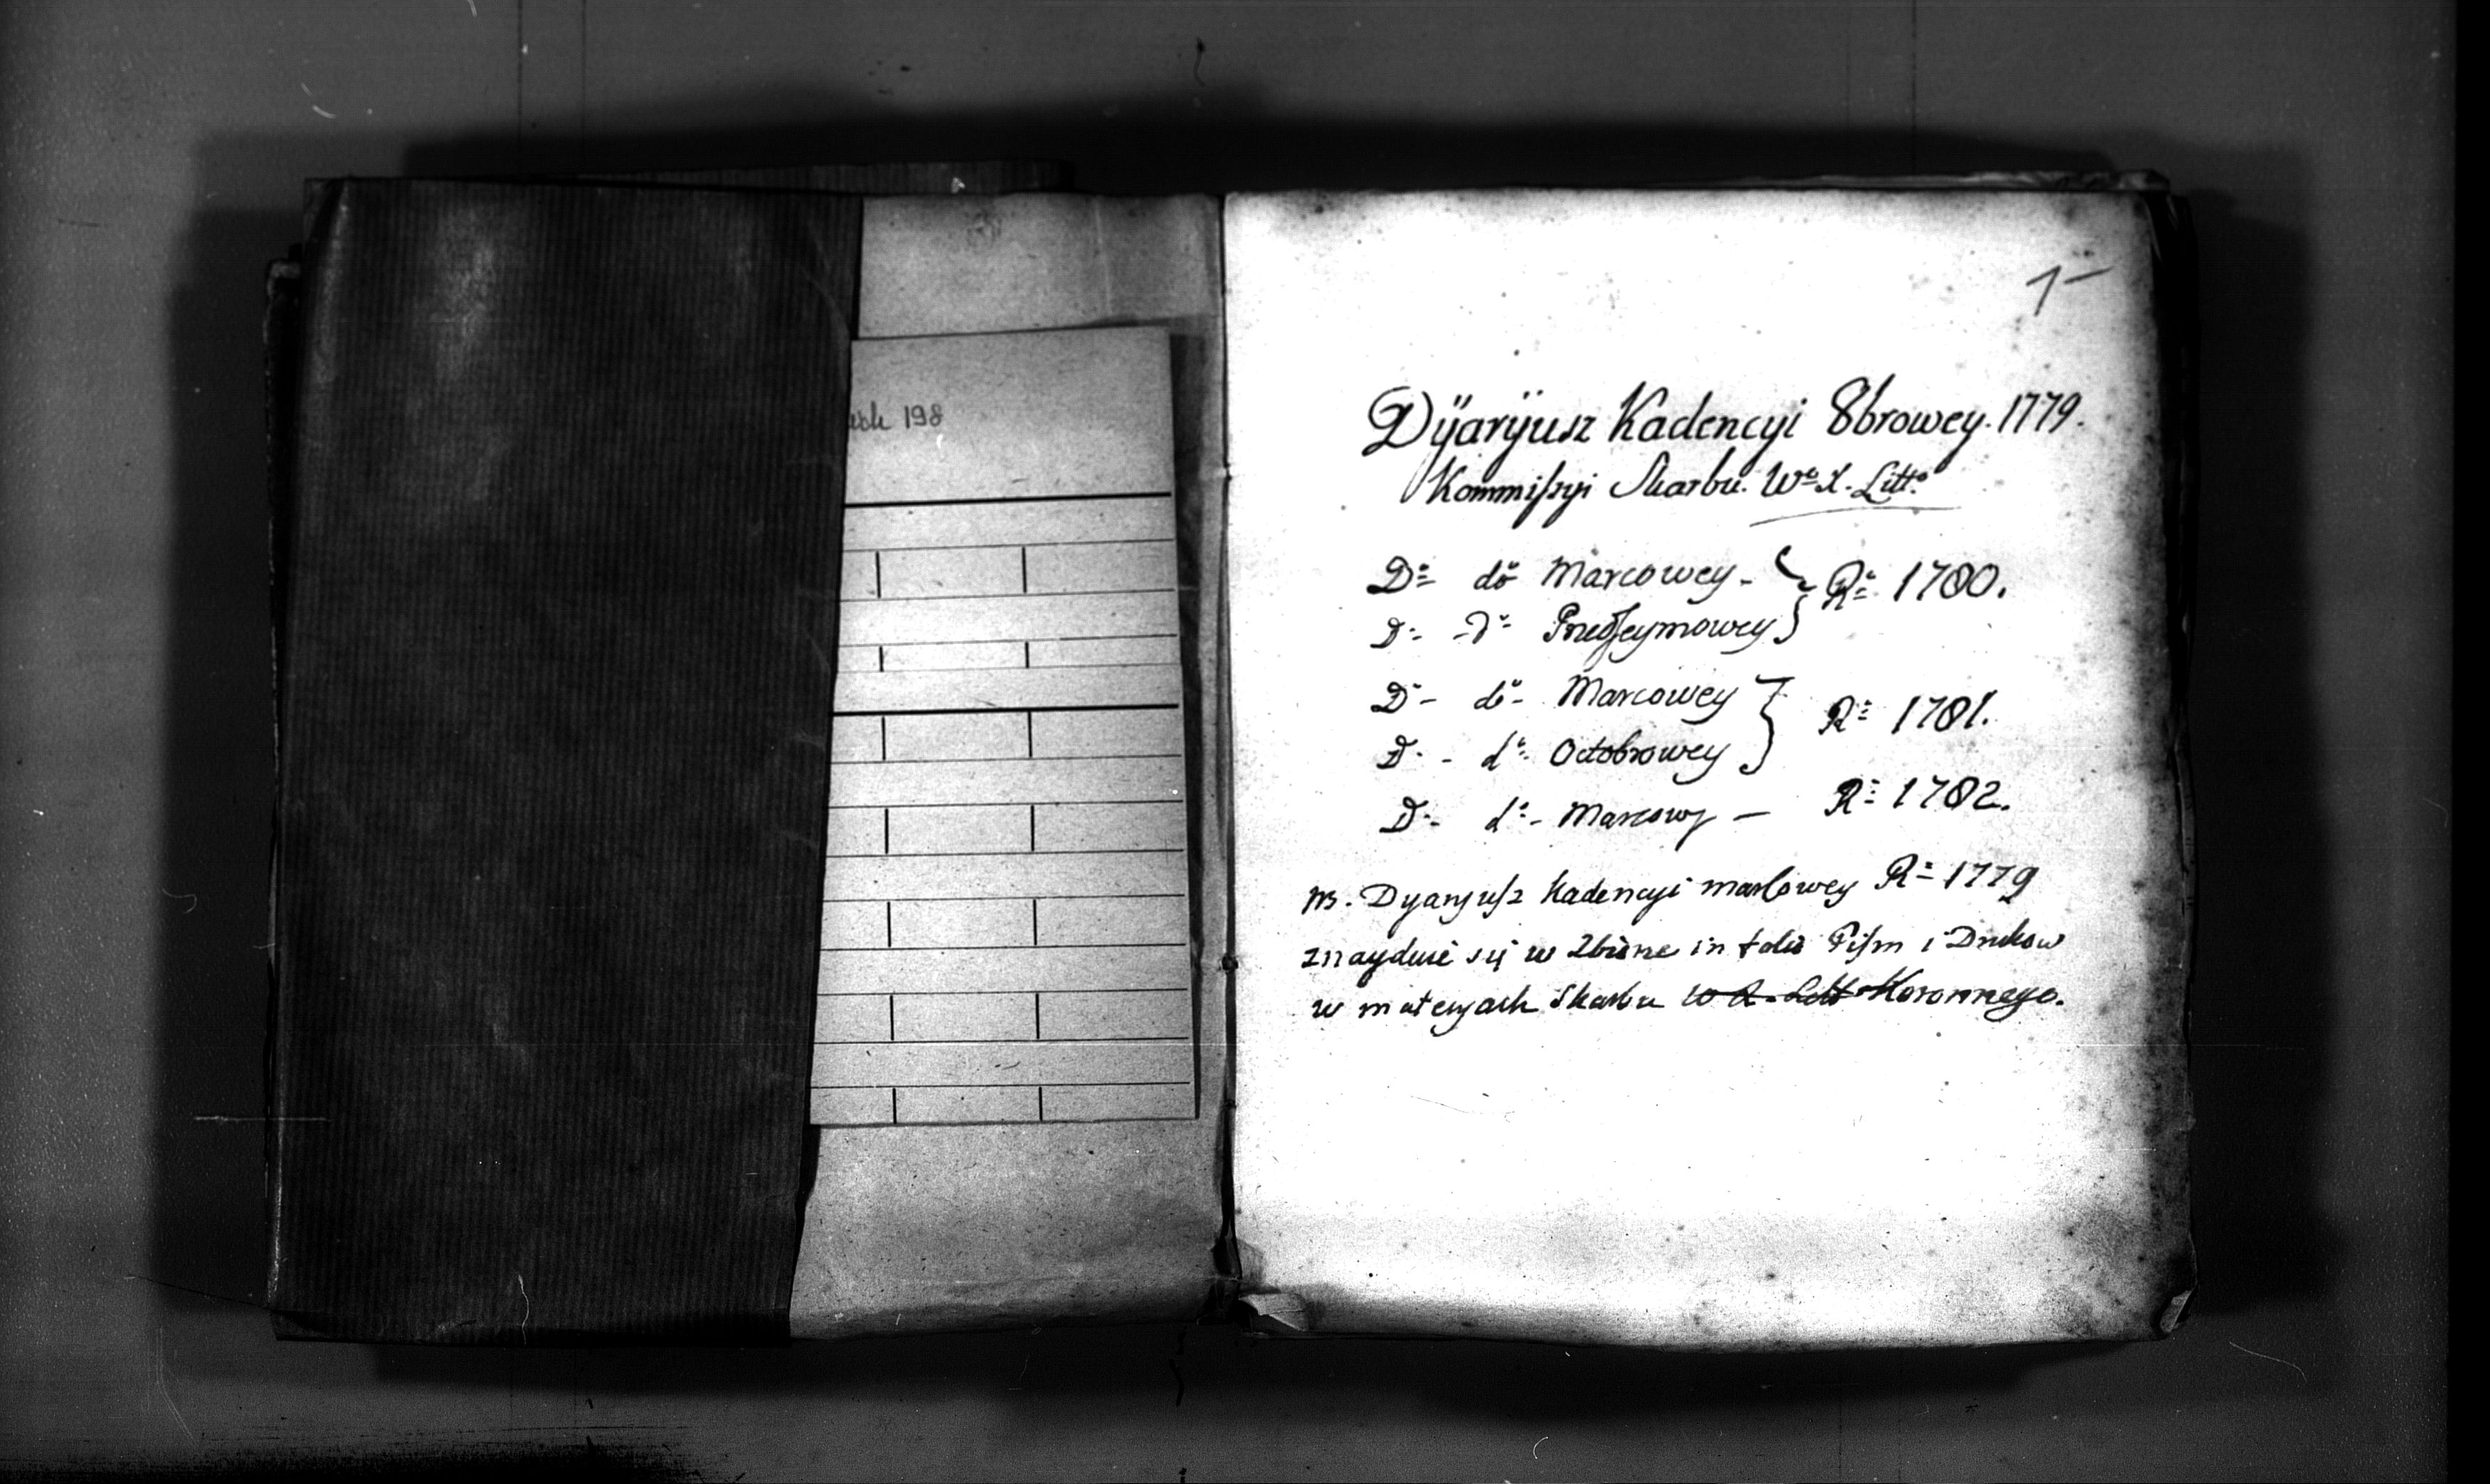 198
1
Dÿarÿusz Kadencyi 8browey. 1779.
Kommiſsyi Skarbu. Wº X. Littº
Dº dº Marcowey - } Rº 1780.
Dº - dº Przedſeymowey
Dº - dº - Marcowey } Rº 1781.
Dº - dº Octobrowey
Dº - dº - Marcowy — Rº 1782.
NB. Dyaryuſz Kadencyi marcowey Rº 1779
znayduie się w Zbiorze in folio Piſm i Drukow
w materyach Skarbu W X. Litt Koronnego.